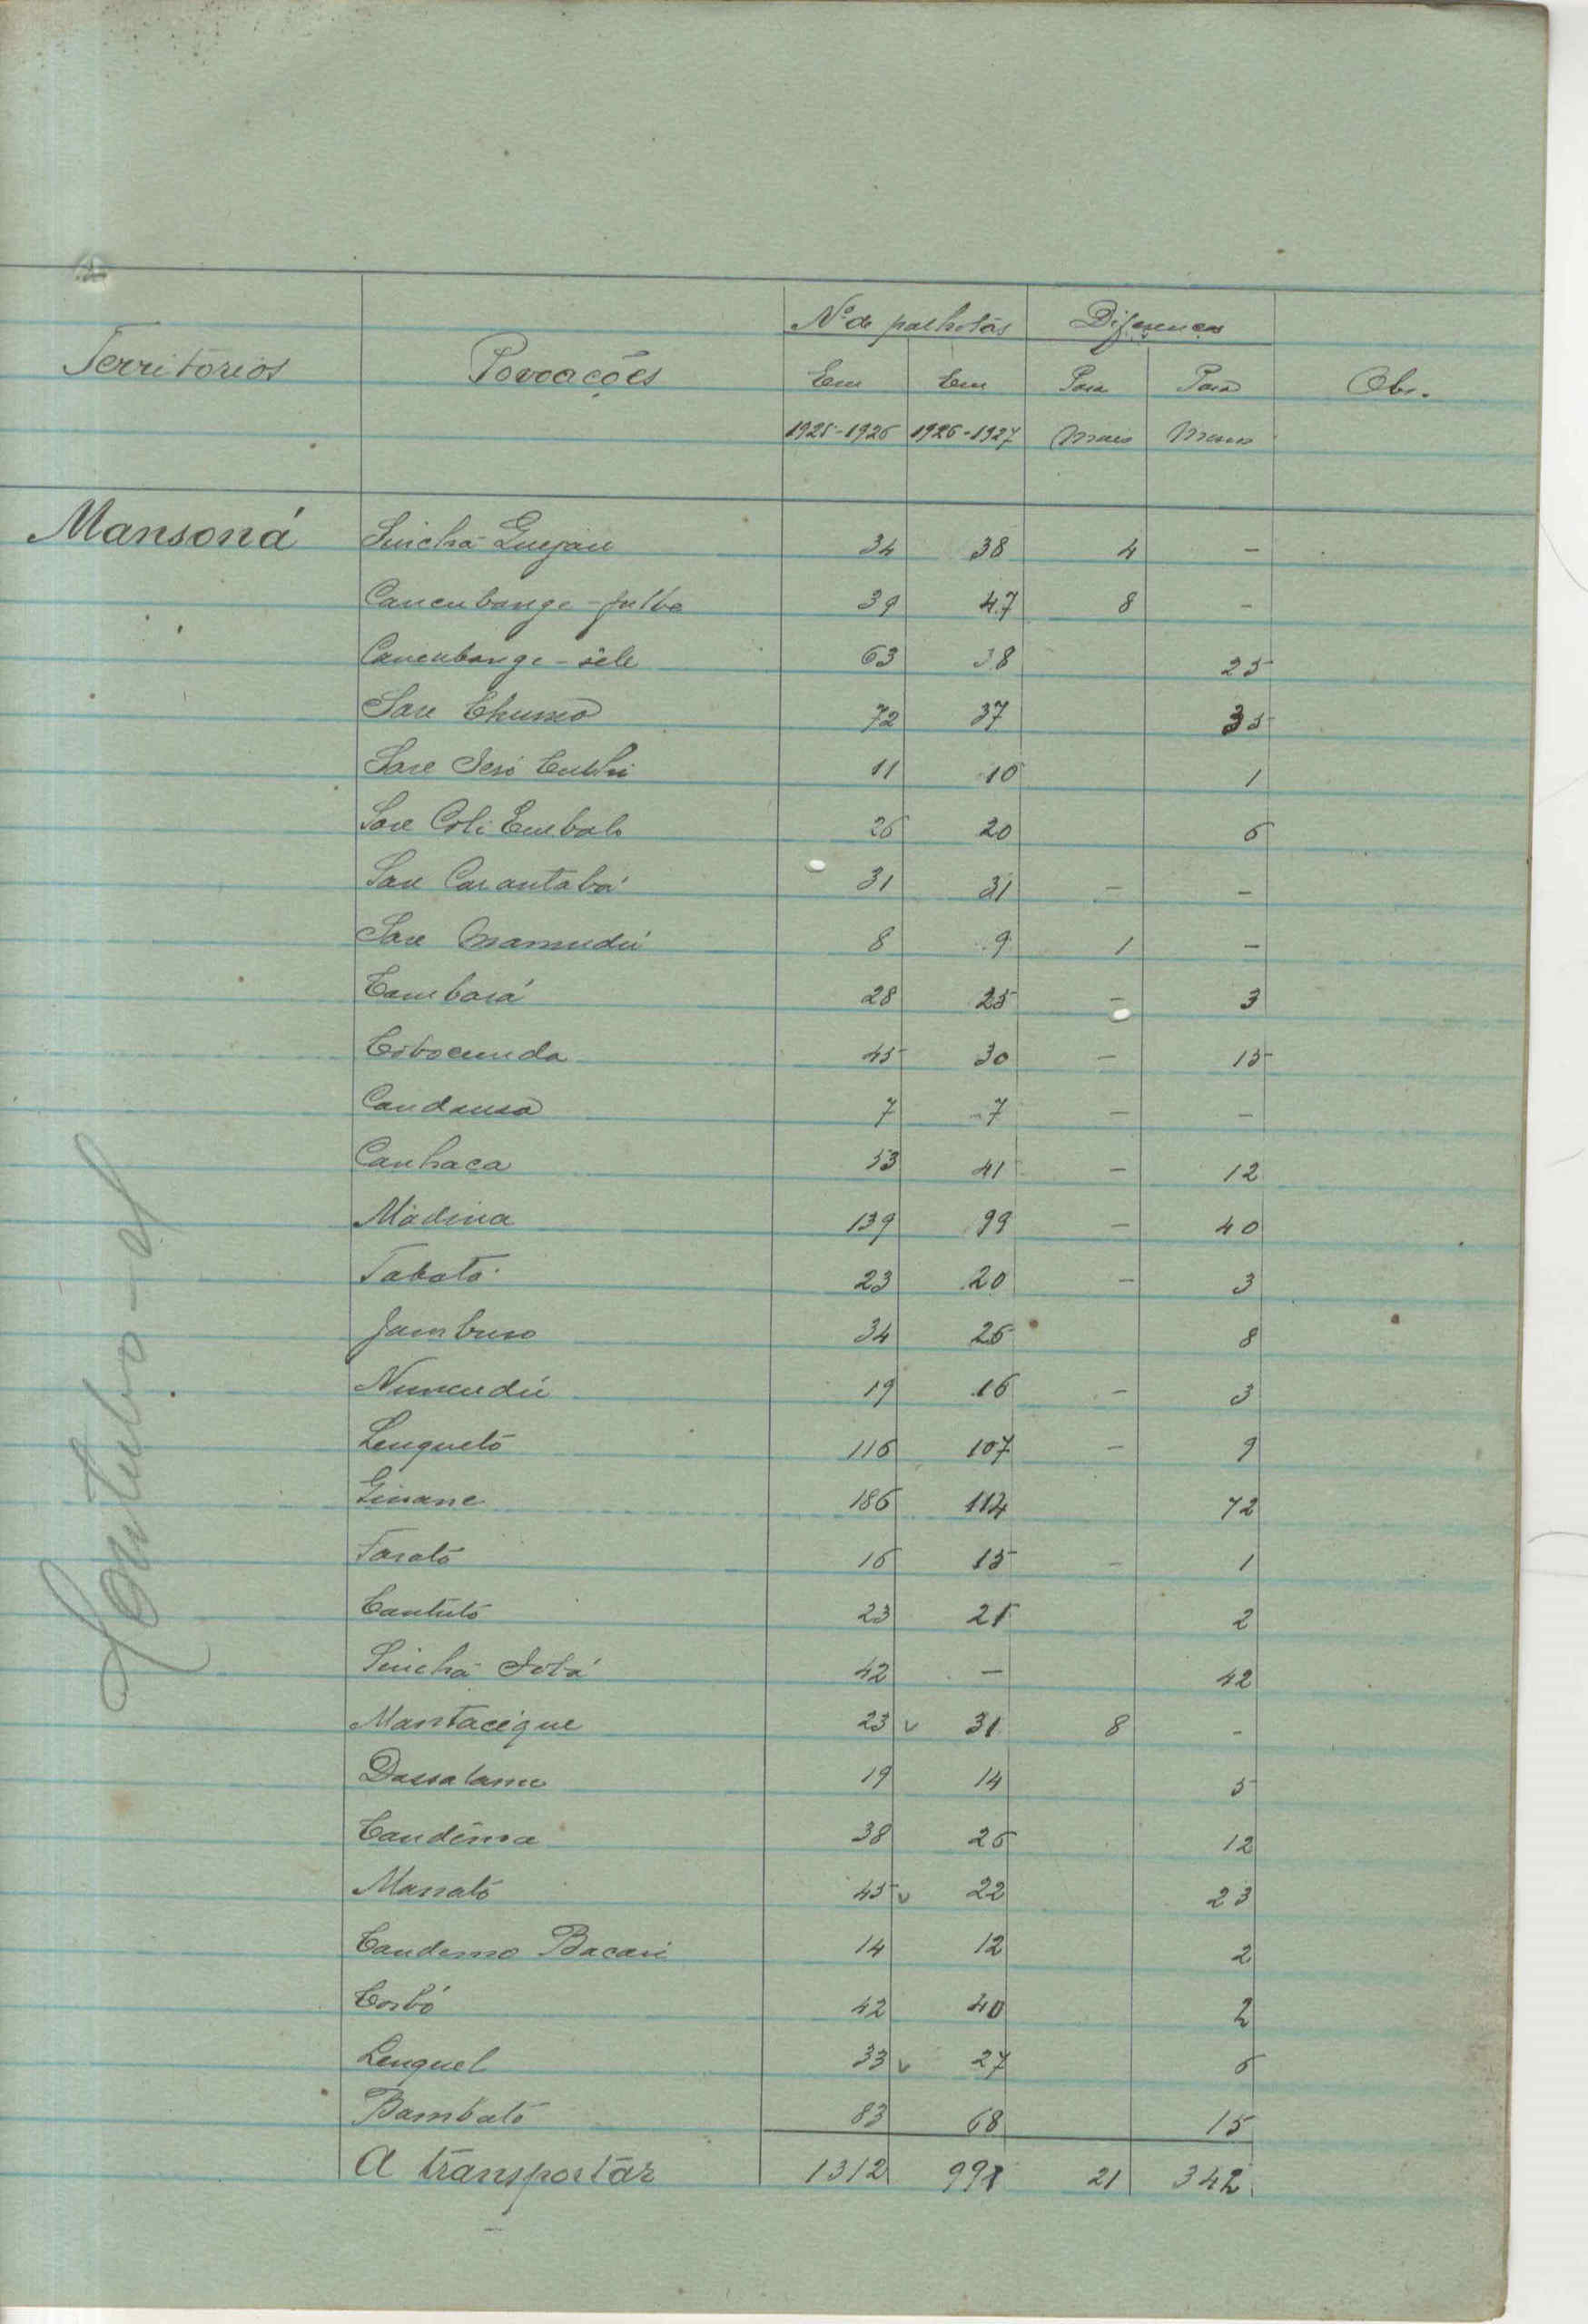 Nº de palhotas Diferenças
Territorios Povoações Em Em Para Para Obs.
1925-1926 1926-1927 Mais Menos
Mansoná Sinchã 34 38 4 -
Canenbange - fulbe 39 47 8 -
Canenbange - séle 63 38 25
Sare 72 37 35
Sare 11 10 1
Sare Coli Embalo 26 20 6
Sare Carantabá 31 31 - -
Sare Mamudú 8 9 1 -
Cambará 28 25 - 3
45 30 - 15
7 7 - -
Canhaca 53 41 - 12
Madina 139 99 - 40
Tabató 23 20 - 3
34 26 8
19 16 - 3
Lenquetó 116 107 - 9
Ginane 186 114 72
Farató 16 15 - 1
Cantutó 23 21 2
Sinchã 42 - 42
Mantacique 23 v 31 8 -
19 14 5
38 26 12
Manató 45 v 22 23
Candemo Bacari 14 12 2
42 40 2
Lenquel 33 v 27 6
Bambató 83 68 15
A transportar 1312 991 21 342